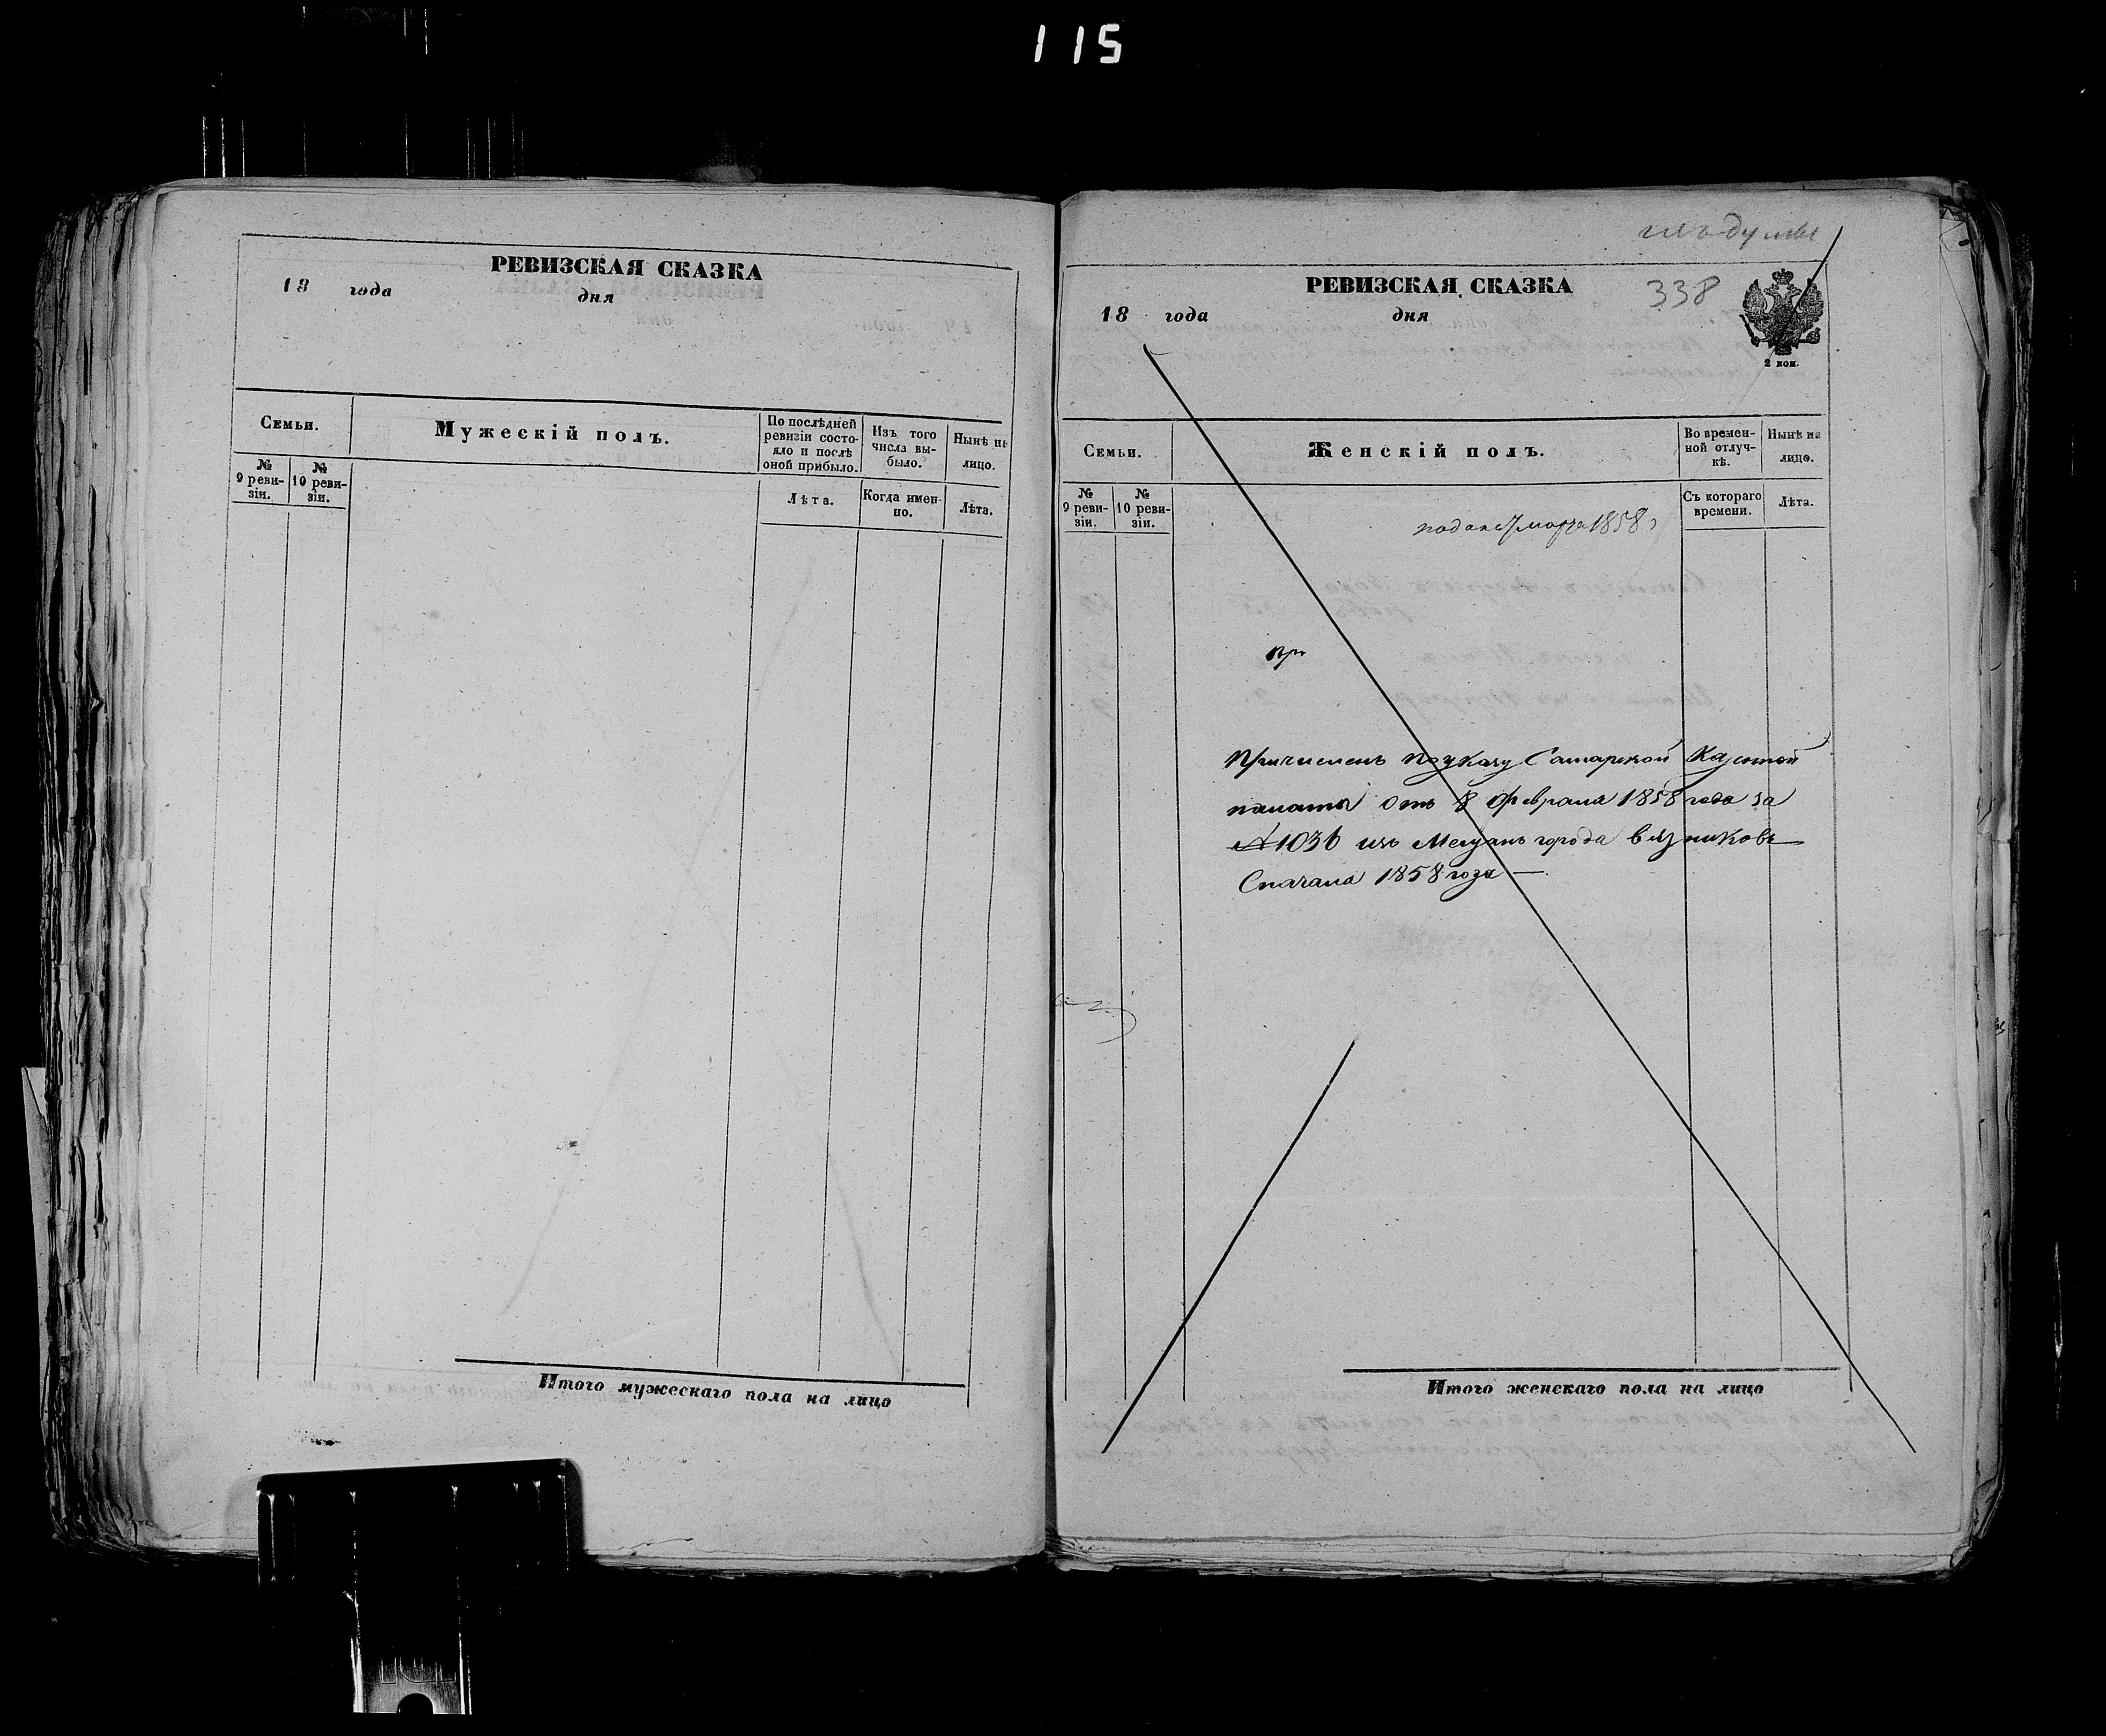 115
РЕВИЗСКАЯ СКАЗКА
18 года дня
Семьи.
Мужескій полъ.
По послѣдней ревизіи состояло и послѣ оной прибыло.
Изъ того числа выбыло.
Нынѣ на лицо.
№ 9 ревизіи.
№ 10 ревизіи.
Лѣта.
Когда именно.
Лѣта.
Итого мужескаго пола на лицо
РЕВИЗСКАЯ СКАЗКА
338
18 года дня
2 коп.
Семьи.
Женскій полъ.
Во временной отлучкѣ.
Нынѣ на лицо.
№ 9 ревизіи.
№ 10 ревизіи.
Съ котораго времени.
Лѣта.
подана 7 марта 1858
При
Причисленъ по указу Самарской Казенной
палаты отъ 8 февраля 1858 года за
№ 1036 изъ Мещанъ города Вязниковъ
Сначала 1858 года —
Итого женскаго пола на лицо